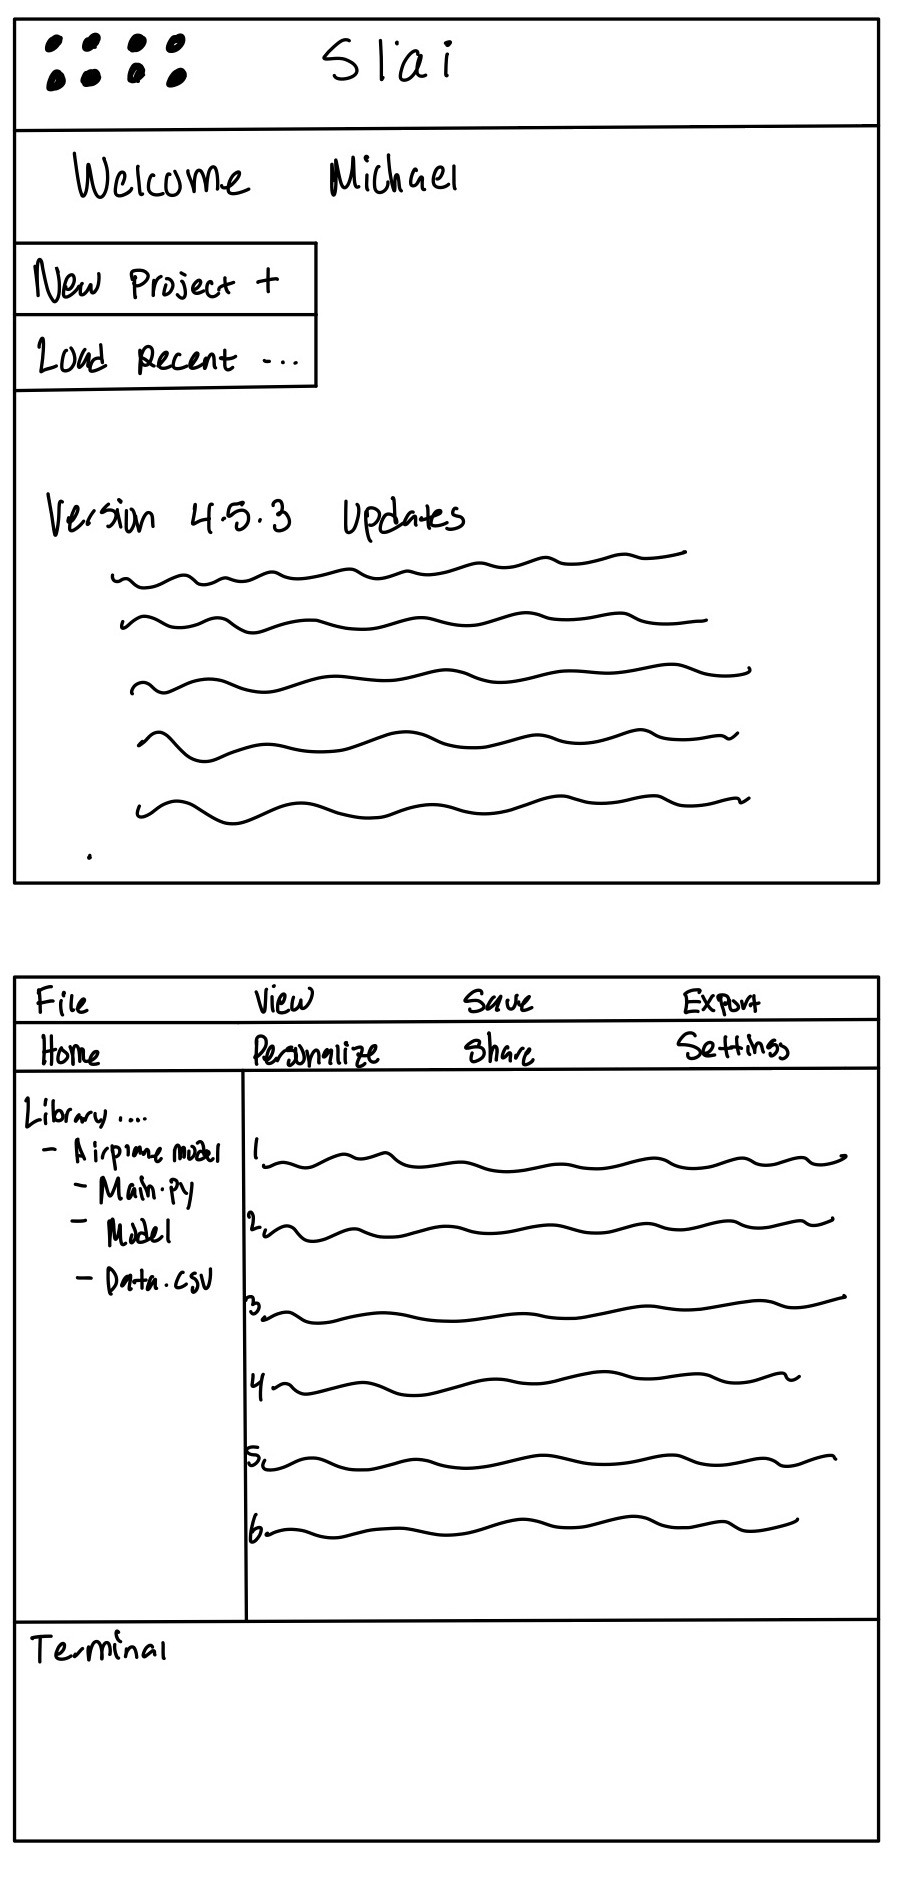 Slai
Welcome Michael
New Project +
Load Recent ...
Version 4.5.3 Updates
File View Save Export
Home Personalize Share Settings
Library ....
- Airplane model
- Main.py
- Model
- Data.csv
1
2
3
4
5
6
Terminal